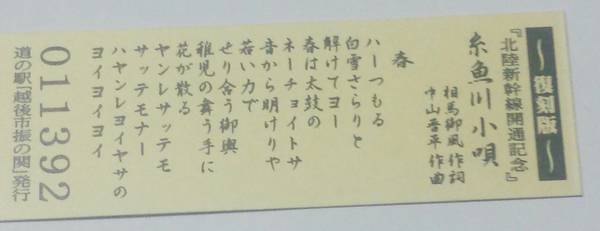 ～復刻版～
『北陸新幹線開通記念』
糸魚川小唄
相馬御風作詞
中山晋平作曲
春
ハーつもる
白雪さらりと
解けてヨー
春は太鼓の
ネーチョイトサ
音から明けりや
若い力で
せり合う御輿
稚児の舞う手に
花が散る
ヤンレサッテモ
サッテモナー
ハヤンレヨイヤサの
ヨイヨイヨイ
011392
道の駅「越後市振の関」発行